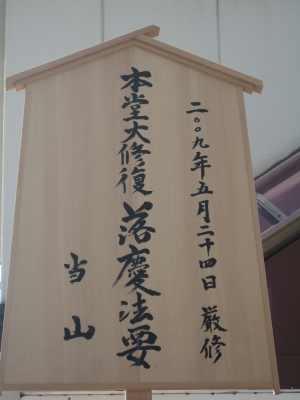 二〇〇九年五月二十四日 厳修
本堂大修復落慶法要
当山